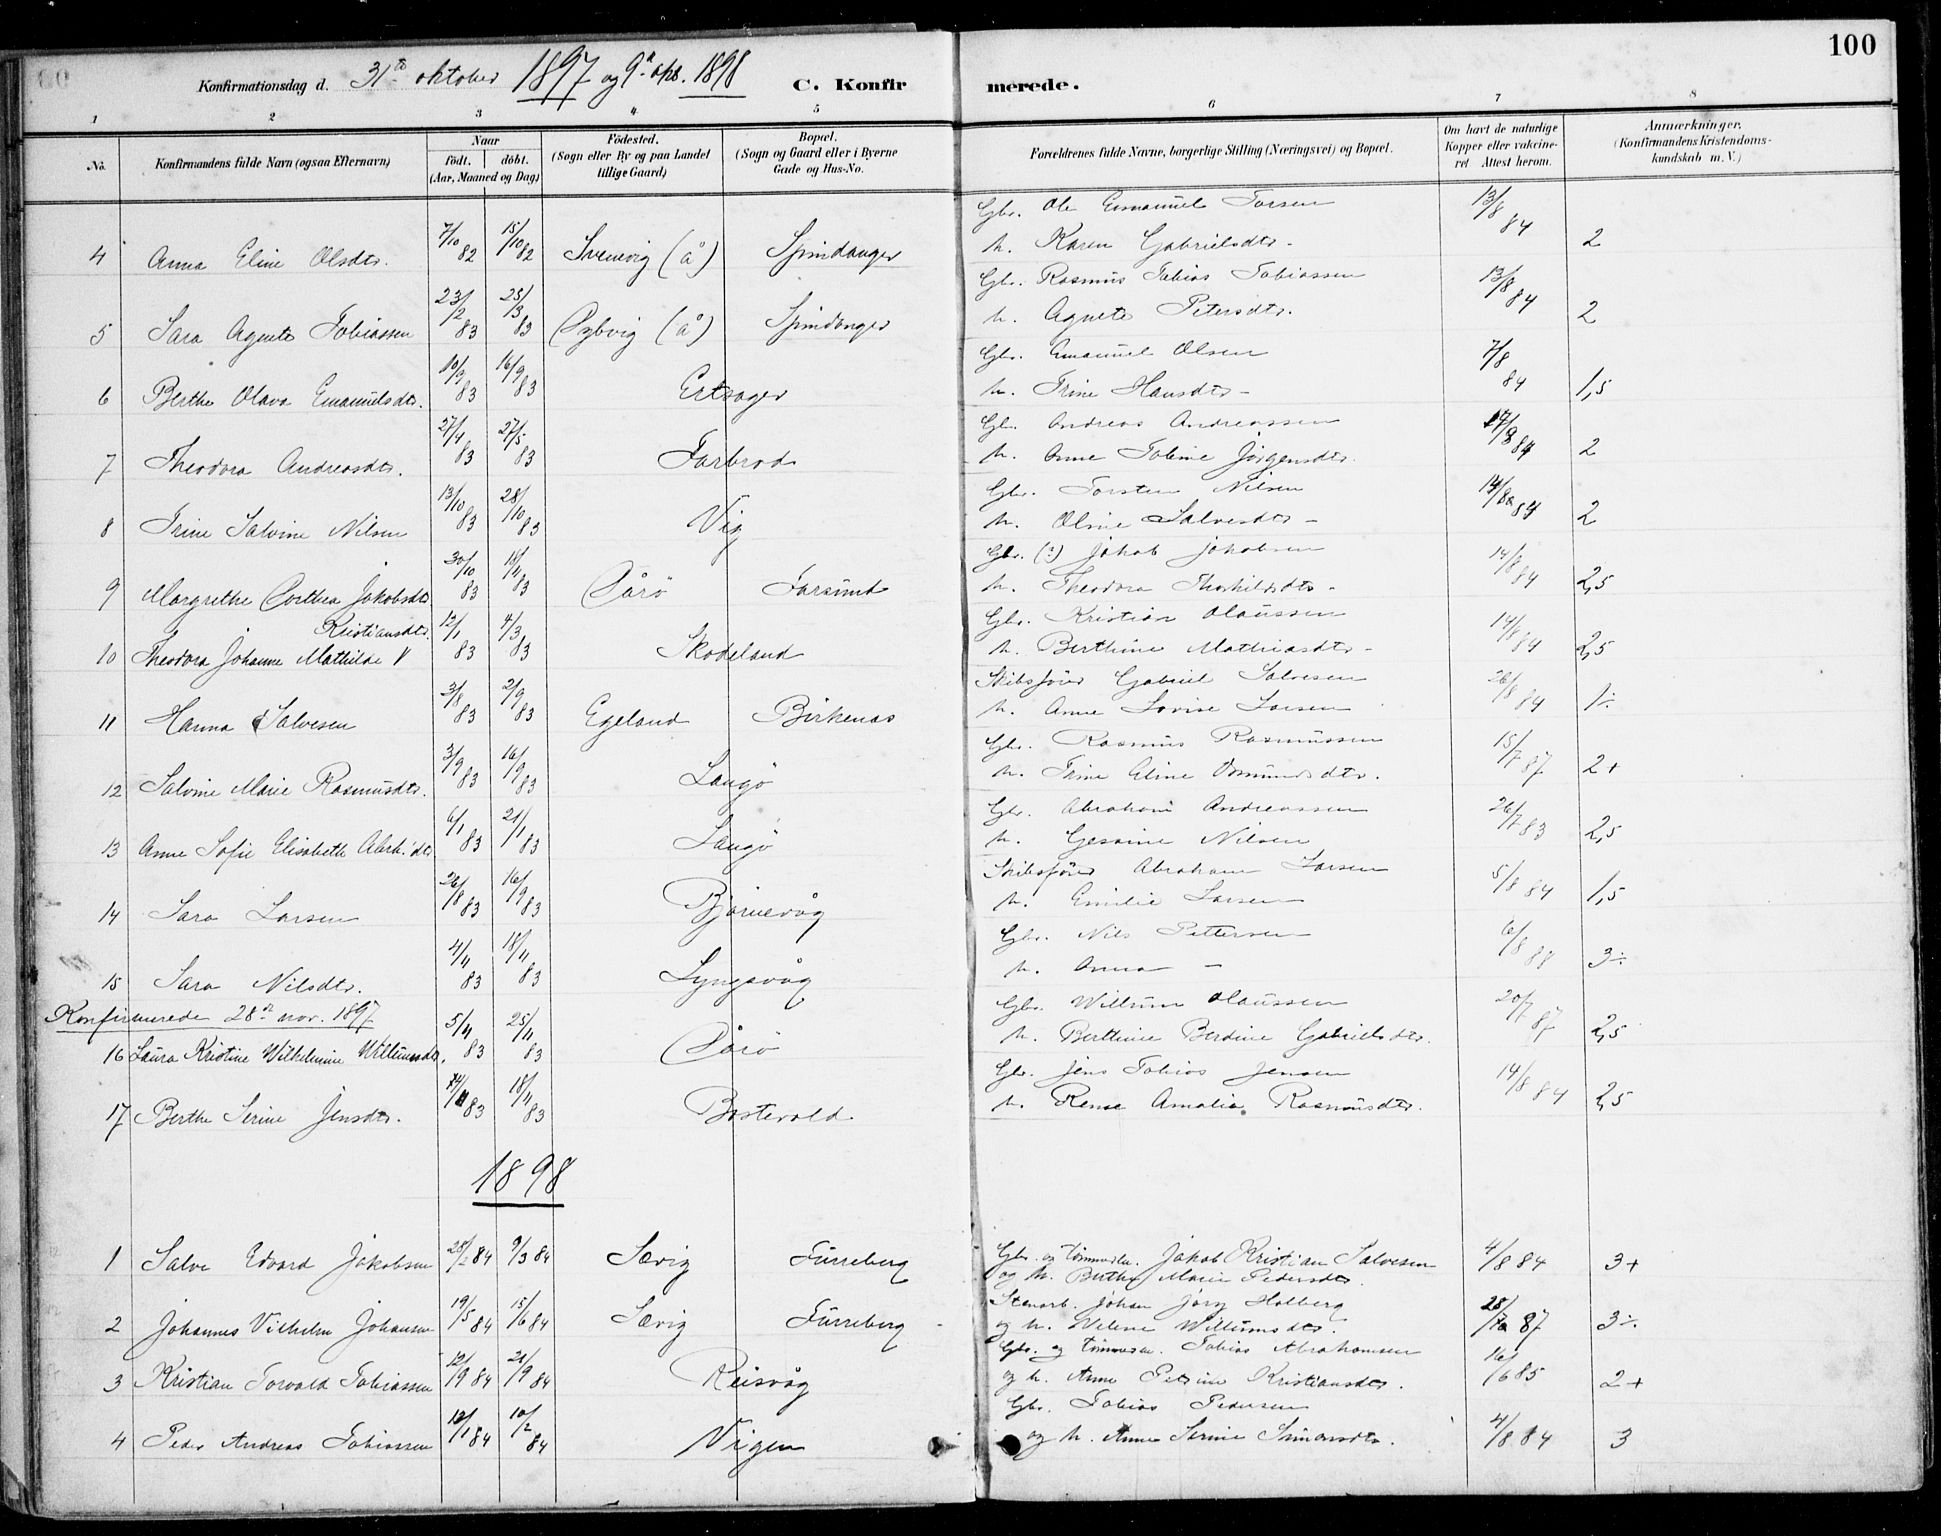 100
Konfirmationsdag d. 31te oktober 1897 og 9de okt. 1898 C. Konfirmerede.
1 2 3 4 5 6 7 8
No. Konfirmandens fulde Navn (ogsaa Efternavn) Naar födt. döbt. (Aar, Maaned og Dag) Födested. (Sogn eller By og paa Landet tillige Gaard) Bopæl. (Sogn og Gaard eller i Byerne Gade og Hus-No. Forældrenes fulde Navne, borgerlige Stilling (Næringsvei) og Bopæl. Om havt de naturlige Kopper eller vakcineret Attest herom. Anmærkninger. (Konfirmandens Kristendomskundskab m. V.)
4 Anna Eline Olsdtr. 7/10 82 15/10 82 Svenevig (å) Spindanger Gbr. Ole Emanuel Torsen 13/8 84 2
h. Karen Gabrielsdtr.
5 Sara Agnete Tobiassen 23/2 83 25/3 83 (å) Spindanger Gbr. Rasmus Tobias Tobiassen 13/8 84 2
h. Agnete Petersdtr.
6 Berthe Olava Emanuelsdtr. 10/9 83 16/9 83 Ertsager Gbr. Emanuel Olsen 7/8 84 1,5
h. Trine Hansdtr -
7 Theodora Andreasdtr. 27/4 83 27/5 83 Farbrod Gbr. Andreas Andreassen 17/8 84 2
h. Anne Tobine Jörgensdtr.
8 Trine Salvine Nilsen 13/10 83 28/10 83 Vig Gbr. Torsten Nilsen 14/8 84 2
h. Oline Salvesdtr -
9 Margrethe Dorthea Jakobsdtr 30/10 83 18/11 83 Dårö Farsund Gbr. (?) Jakob Jakobsen 14/8 84 2,5
h. Theodora Thorkildsdtr -
Kristiansdtr.
10 Theodora Johanne Mathilde V 12/1 83 4/3 83 Skodeland Gbr. Kristian Olaussen 14/8 84 2,5
h. Berthine Mathiasdtr -
11 Hanna Salvesen 3/8 83 2/9 83 Egeland Birkenas Skibsförer Gabriel Salvesen 26/8 84 1÷
h. Anne Lovise Larsen
12 Salvine Marie Rasmusdtr. 3/9 83 16/9 83 Langö Gbr. Rasmus Rasmussen 15/7 87 2+
h. Trine Eline Osmundsdtr.
13 Anne Sofie Elisabeth Abrh.'dtr 6/1 83 21/1 83 Langö Gbr. Abraham Andreassen 26/7 83 2,5
h. Gesine Nilsen
14 Sara Larsen 26/8 83 16/9 83 Björnevåg Skibsförer Abraham Larsen 5/8 84 1,5
h. Emilie Larsen
15 Sara Nilsdtr. 4/11 83 18/11 83 Lyngsvåg Gbr. Nils Pettersen 6/8 88 3÷
h. Anna -
Konfirmerede 28de nov. 1897
16 Laura Kristine Wilhelmine Willumsdtr. 5/11 83 25/11 83 Dårö Gbr. Willum Olaussen 20/7 87 2,5
h. Berthine Berdine Gabrielsdtr.
17 Berthe Serine Jensdtr. 18/11 83 Bostevold Gbr. Jens Tobias Jensen 14/8 84 2,5
h. Amalia Rasmusdtr.
1898
1 Salve Edvard Jakobsen 28/2 84 9/3 84 Sævig Fürreberg Gbr. og tömmerm. Jakob Kristian Salvesen 4/8 84 3+
og h. Berthe Marie Pedersdtr.
2 Johannes Vilhelm Johansen 19/5 84 15/6 84 Sævig Fürreberg Stenarb. Johan Jörg Holberg 28/ 87 3÷
og h. Helene Willumsdtr.
3 Kristian Torvald Tobiassen 12/9 84 21/9 84 Reisvåg Gbr. og tömmerm. Tobias Abrahamsen 16/6 85 2+
og h. Anne Petrine Kristiansdtr.
4 Peder Andreas Tobiassen 12/1 84 10/2 84 Vigen Gbr. Tobias Pedersen 4/8 84 3
og h. Anne Serine Simonsdtr.